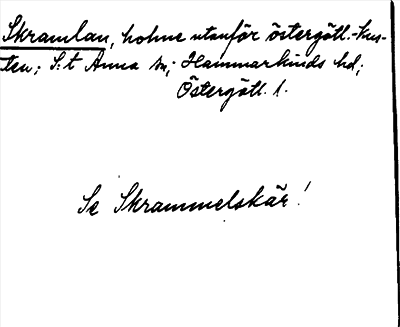 Skramlan, holme utanför östergötl.-kus-
ten; S:t Anna sn; Hammarkinds hd;
Östergötl. l.
Se Skrammelskär!